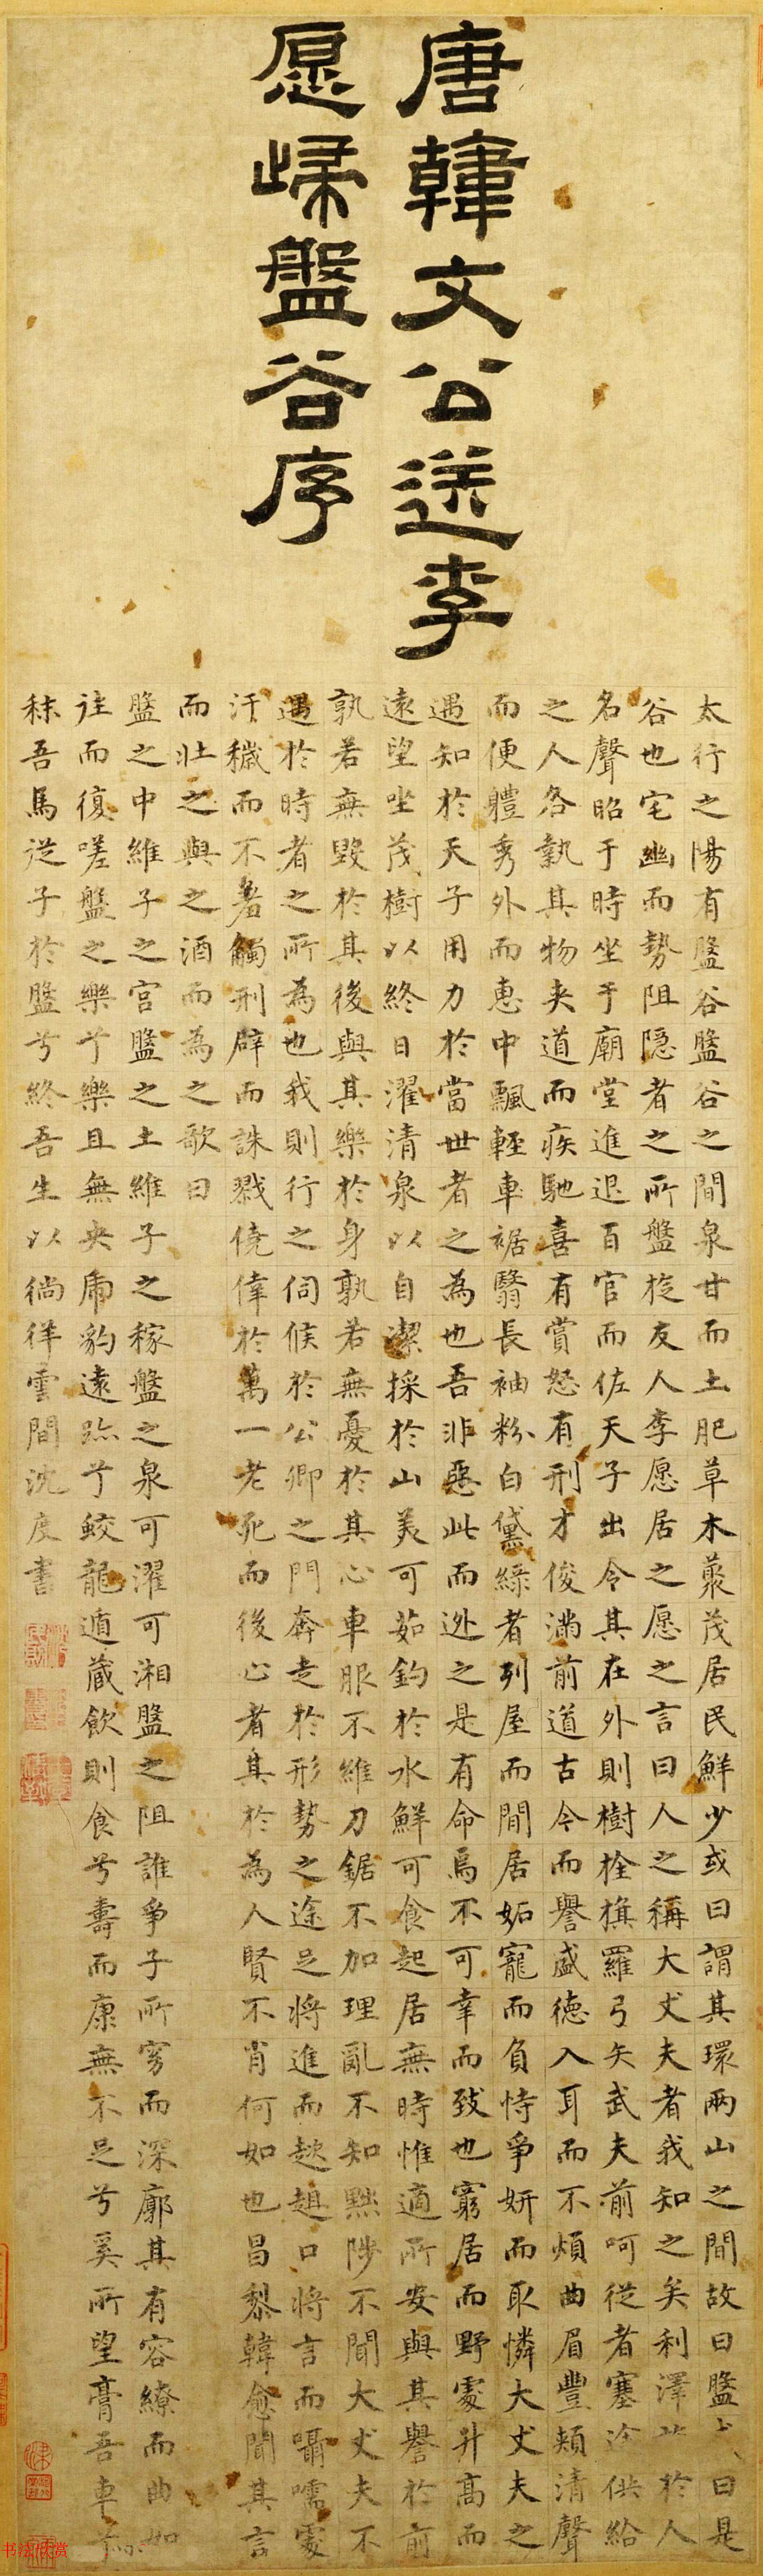 唐韓文公送李
愿歸盤谷序
太行之陽有盤谷盤谷之間泉甘而土肥草木藂茂居民鮮少或曰謂其環兩山之間故曰盤曰是
谷也宅幽而勢阻隱者之所盤旋友人李愿居之愿之言曰人之稱大丈夫者我知之矣利澤於人
名聲昭于時坐于廟堂進退百官而佐天子出令其在外則樹栓旗羅弓矢武夫前呵從者塞途供給
之人各執其物夾道而疾馳喜有賞怒有刑才俊滿前道古今而譽盛德入耳而不煩曲眉豐頰清聲
而便體秀外而惠中飄輕車裾翳長袖粉白黛綠者列屋而閒居妬寵而負恃爭妍而取憐大丈夫之
遇知於天子用力於當世者之為也吾非惡此而逃之是有命焉不可幸而致也窮居而野處升高而
遠望坐茂樹以終日濯清泉以自潔採於山美可茹釣於水鮮可食起居無時惟適所安與其譽於前
孰若無毀於其後與其樂於身孰若無憂於其心車服不維刀鋸不加理亂不知黜陟不聞大丈夫不
遇於時者之所為也我則行之伺候於公卿之門奔走於形勢之途足將進而趑趄口將言而囁嚅處
汙穢而不羞觸刑辟而誅戮僥倖於萬一老死而後止者其於為人賢不肖何如也昌黎韓愈聞其言
而壯之與之酒而為之歌曰
盤之中維子之宮盤之土維子之稼盤之泉可濯可湘盤之阻誰爭子所窈而深廓其有容繚而曲如
往而復嗟盤之樂兮樂且無央虎豹遠跡兮蛟龍遁藏飲則食兮壽而康無不足兮奚所望膏吾車兮
秣吾馬從子於盤兮終吾生以徜徉雲間沈度書
书法欣赏